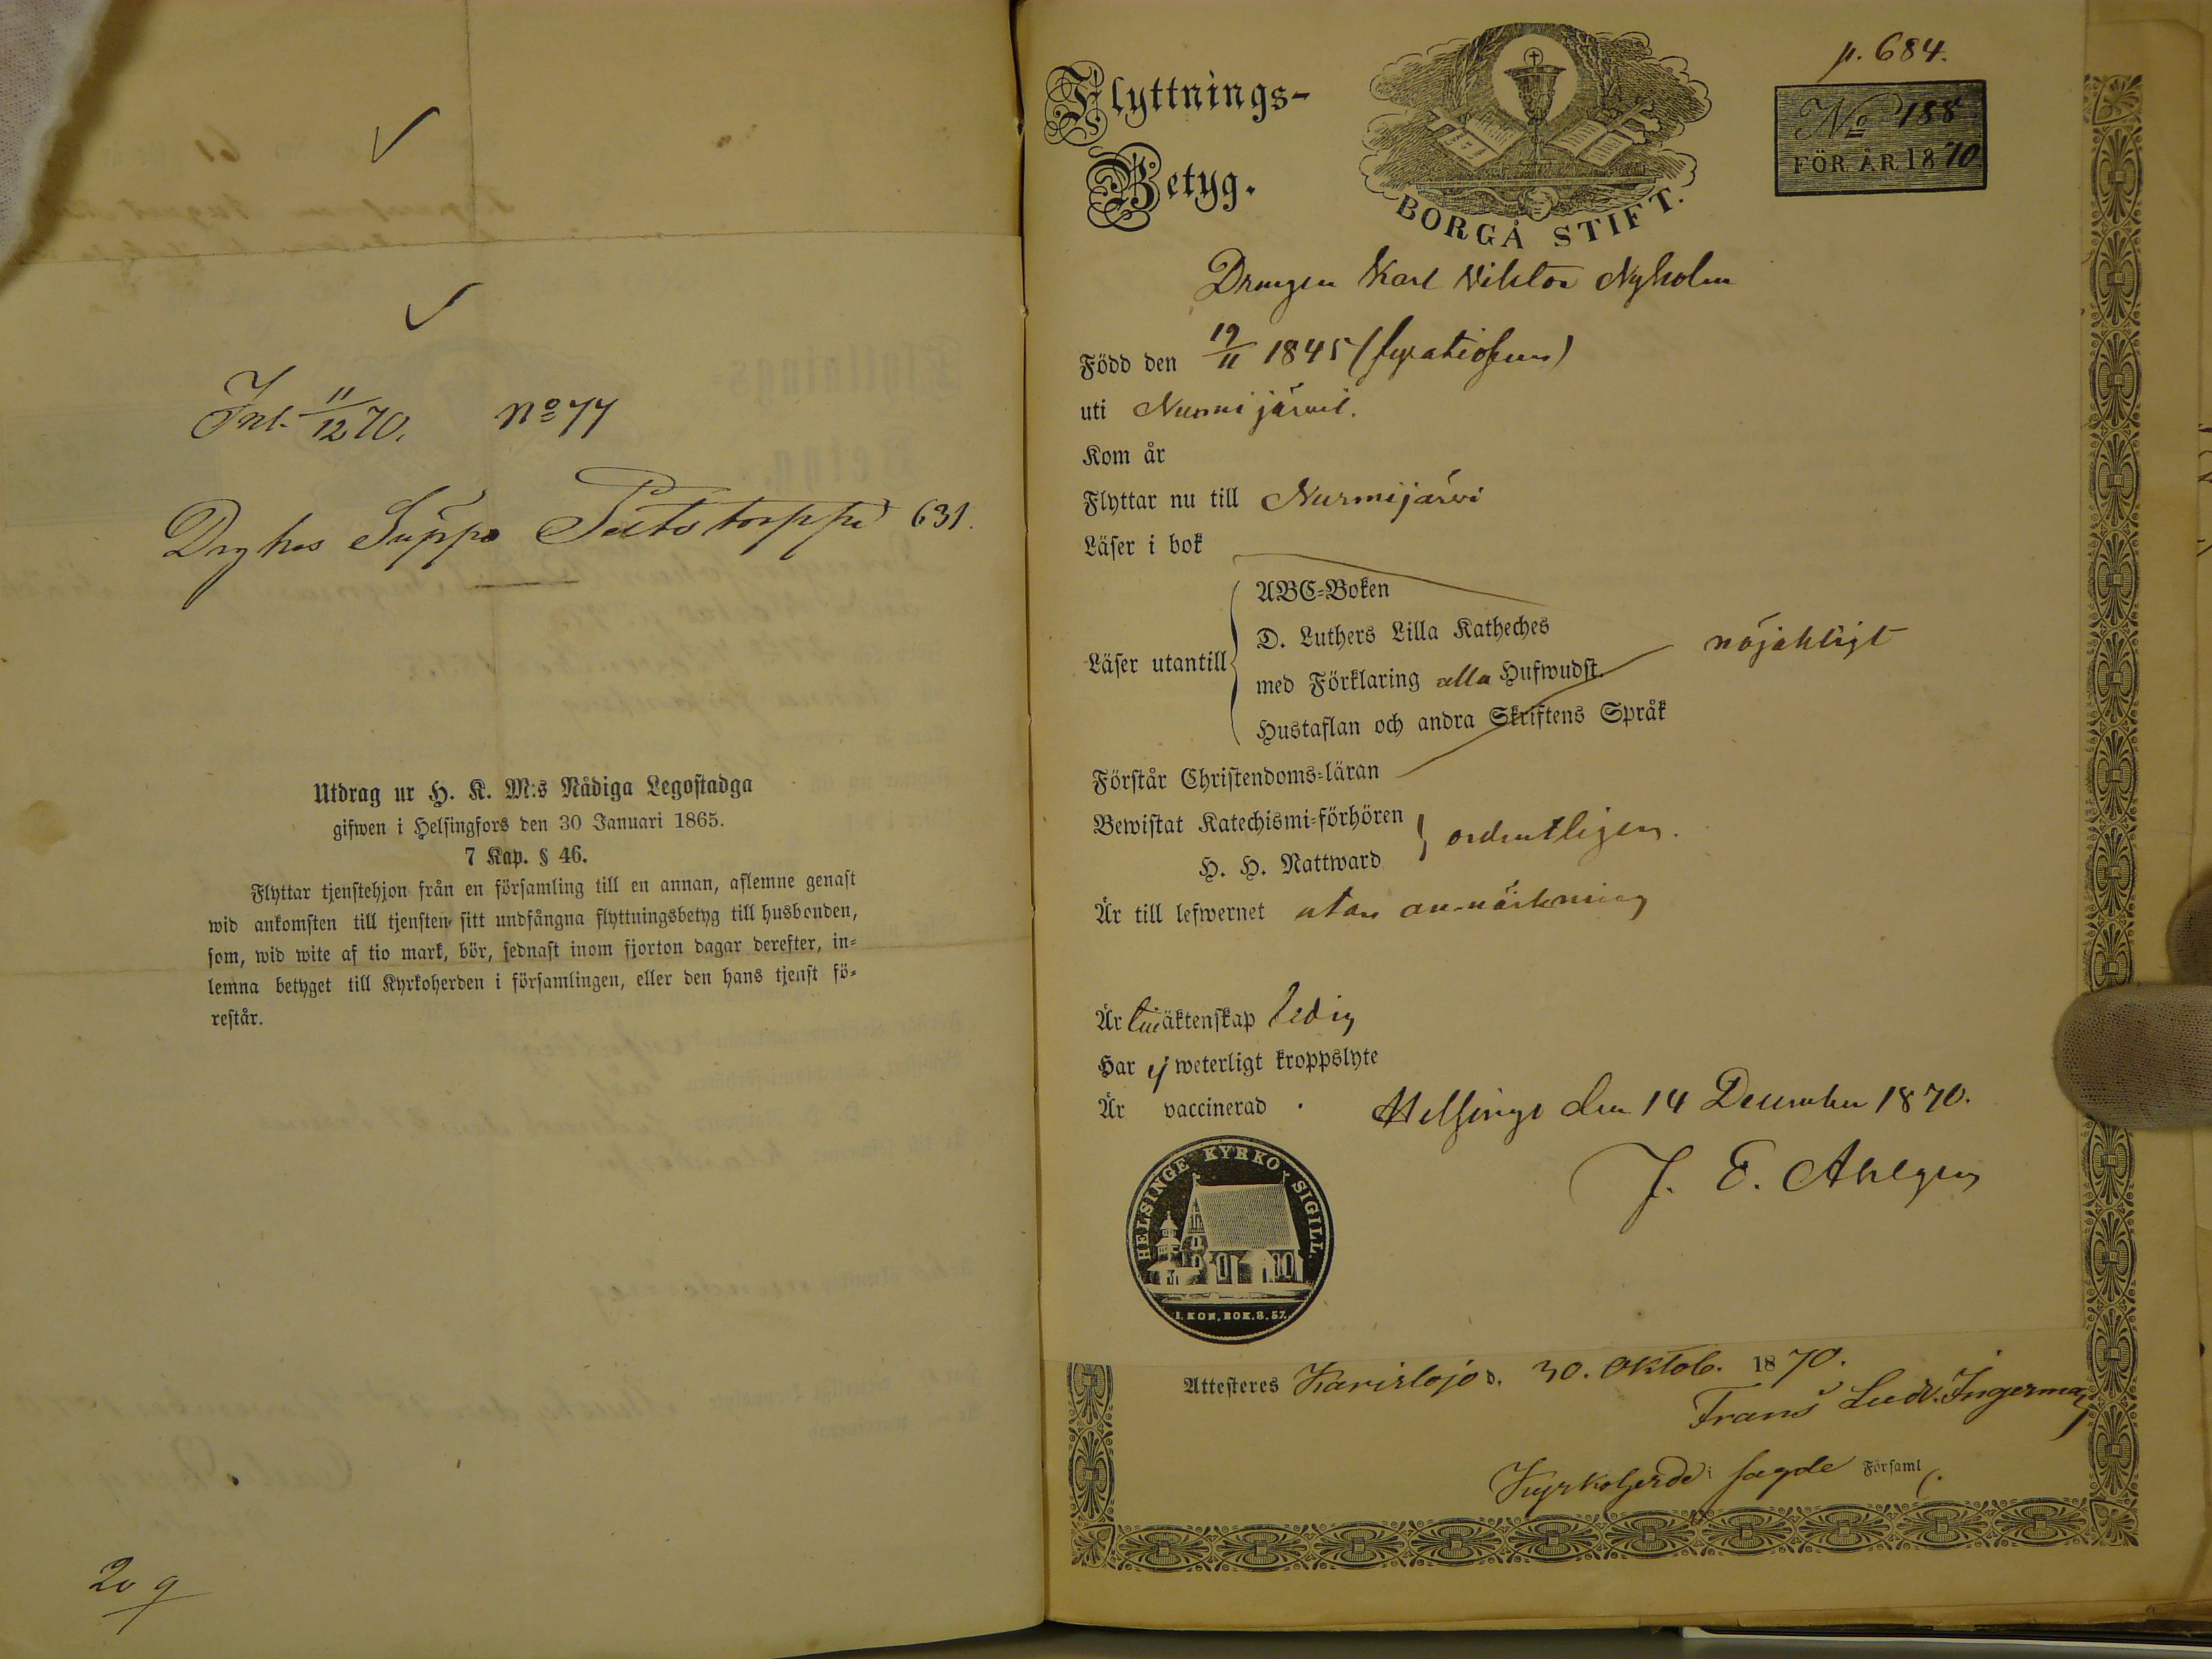 Inl. 11/12 70. No 77
Dr hos Seppä Pietotorppa 631.
Utdrag ur H. K. M:s Nådiga Legostadga
gifwen i Helsingfors den 30 Januari 1865.
7 Kap. § 46.
Flyttar tjenstehjon från en församling till en annan, aflemne genast
wid ankomsten till tjensten sitt undfångna flyttningsbetyg till husbonden,
som, wid wite af tio mark, bör, sednast inom fjorton dagar derefter, in-
lemna betyget till Kyrkoherden i församlingen, eller den hans tjenst fö-
restår.
20 9
p. 684.
Flyttnings-
Betyg.
BORGÅ STIFT.
No 188
FÖR ÅR 1870
Drengen Karl Viktor Nyholm
Född den 19/11 1845 (fyratiofem)
uti Nurmijärvi.
Kom år
Flyttar nu till Nurmijärvi
Läser i bok
Läser utantill
ABC-Boken
D. Luthers Lilla Katheches
med Förklaring alla Hufwudst.
Hustaflan och andra Skriftens Språk
nöjaktigt
Förstår Christendoms-läran
Bewistat Katechismi-förhören
H. H. Nattward
ordentligen.
Är till lefwernet utan anmärkning
Är till äktenskap ledig
Har ej weterligt kroppslyte
Är vaccinerad.
Helsinge den 14 December 1870.
J. E. Ahlgren
HELSINGE KYRKO SIGILL.
1. KON. BOK. 8. 57.
Attesteres Karislojo d. 30. Oktob. 1870.
Frans Ludv. Ingerman
Kyrkoherde i sagde Församl.